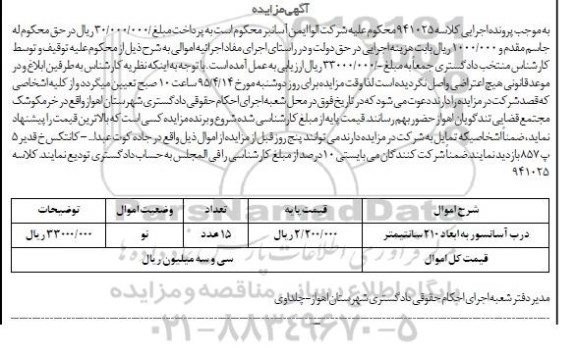 آگهی مزایده
به موجب پرونده اجرایی کلاسه ۹۴۱۰۲۵ محکوم علیه شرکت لوا ایمن آسانبر محکوم است به پرداخت مبلغ ۳۰/۰۰۰/۰۰۰ ریال در حق محکوم له
جاسم مقدم و ۱۰۰۰/۰۰۰ ریال بابت هزینه اجرایی در حق دولت و در راستای اجرای مفاد اجرائیه اموالی به شرح ذیل از محکوم علیه توقیف و توسط
کارشناس منتخب دادگستری جمعا به مبلغ -/۳۳۰۰۰/۰۰۰ ریال ارزیابی به عمل آمده است. با توجه به اینکه نظریه کارشناس به طرفین ابلاغ و در
موعد قانونی هیچ اعتراضی واصل نگردیده است لذا وقت مزایده برای روز دوشنبه مورخ ۹۵/۴/۱۴ ساعت ۱۰ صبح تعیین میگردد و از کلیه اشخاصی
که قصد شرکت در مزایده را دارند دعوت می شود که در تاریخ فوق در محل شعبه اجرای احکام حقوقی دادگستری شهرستان اهواز واقع در خرمکوشک
مجتمع قضایی تندگویان اهواز حضور بهم رسانند قیمت پایه از مبلغ کارشناسی شده شروع و برنده مزایده کسی است که بالاترین قیمت را پیشنهاد
نماید، ضمنا اشخاصیکه تمایل به شرکت در مزایده دارند می توانند پنج روز قبل از مزایده از اموال ذیل واقع در جاده کوت عبدا... - کانتکس خ قدیر ۵
پ ۸۵۷ بازدید نمایند. ضمنا شرکت کنندگان می بایستی ۱۰ درصد از مبلغ کارشناسی را فی المجلس به حساب دادگستری تودیع نمایند کلاسه
۹۴۱۰۲۵
شرح اموال قیمت پایه تعداد وضعیت اموال توضیحات
درب آسانسور به ابعاد ۲۱۰ سانتیمتر ۲/۲۰۰/۰۰۰ ریال ۱۵ عدد نو ۳۳۰۰۰/۰۰۰ ریال
قیمت کل اموال سی و سه میلیون ریال
پایگاه اطلاع رسانی مناقصه و مزایده
مدیر دفتر شعبه اجرای احکام حقوقی دادگستری شهرستان اهواز - چلداوی
۰۲۱-۸۸۳۴۹۶۷۰-۵